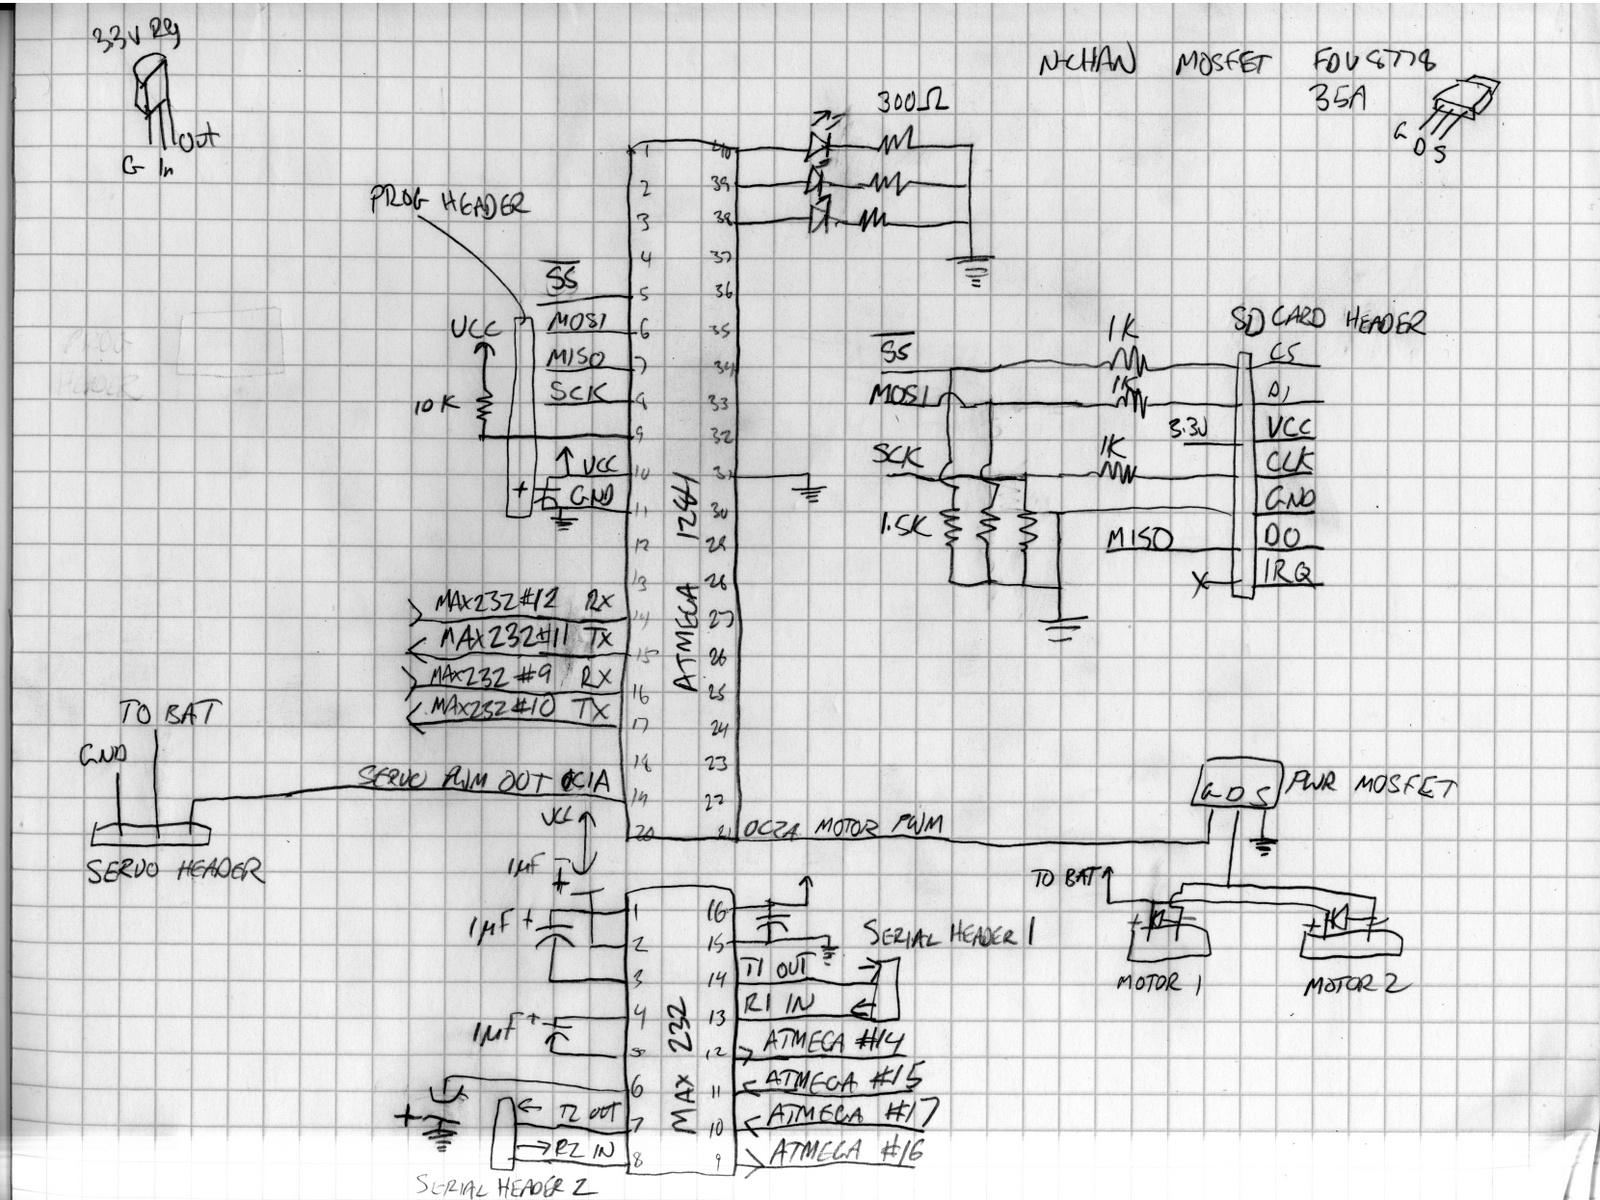 3.3V Reg
G In Out
N-CHAN MOSFET FDU8778
35A
G D S
300Ω
PROG HEADER
1 40
2 39
3 38
4 37
SS
5 36
MOSI
6 35
VCC
MISO
7 34
SCK
8 33
10K
9 32
VCC
10 31
+ GND
11 30
12 29
13 28
MAX232#12 RX
14 27
MAX232#11 TX
15 26
MAX232 #9 RX
16 25
MAX232#10 TX
17 24
18 23
SERVO PWM OUT OC1A
19 22
20 21
ATMEGA 1284
PROG
HEADER
SD CARD HEADER
SS
1K
CS
MOSI
1K
DI
3.3V
VCC
SCK
1K
CLK
GND
1.5K
MISO
DO
X
IRQ
TO BAT
GND
SERVO HEADER
OC2A MOTOR PWM
G D S PWR MOSFET
TO BAT
+ - + -
MOTOR 1 MOTOR 2
VCC
1µF
+
1µF +
1 16
2 15
3 14
4 13
5 12
6 11
7 10
8 9
MAX 232
1µF +
SERIAL HEADER 1
T1 OUT
R1 IN
ATMEGA #14
ATMEGA #15
ATMEGA #17
ATMEGA #16
+
T2 OUT
R2 IN
SERIAL HEADER 2